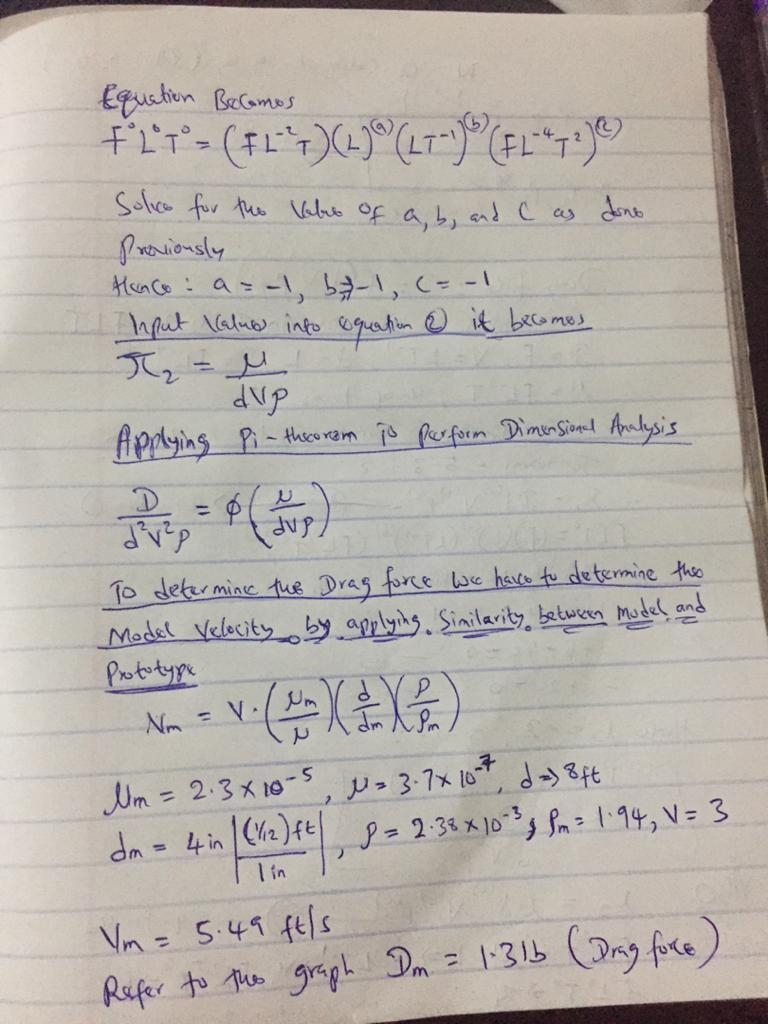 Equation Becomes
F⁰L⁰T⁰ = (FL⁻²T)(L)⁽ᵃ⁾(LT⁻¹)⁽ᵇ⁾(FL⁻⁴T²)⁽ᶜ⁾
Solve for the Value of a, b, and c as done
Previously
Hence : a = -1, b = -1, c = -1
Input Values into equation ② it becomes
π₂ = μ / dVρ
Applying Pi-theorem to perform Dimensional Analysis
D / d²V²ρ = φ(μ / dVρ)
To determine the Drag force we have to determine the
Model Velocity by applying Similarity between model and
Prototype
Vm = V·(μm / μ)(d / dm)(ρ / ρm)
μm = 2.3 × 10⁻⁵, μ = 3.7 × 10⁻⁷, d => 8ft
dm = 4in |(1/12)ft / 1in|, ρ = 2.38 × 10⁻³, ρm = 1.94, V = 3
Vm = 5.49 ft/s
Refer to the graph Dm = 1.3lb (Drag force)